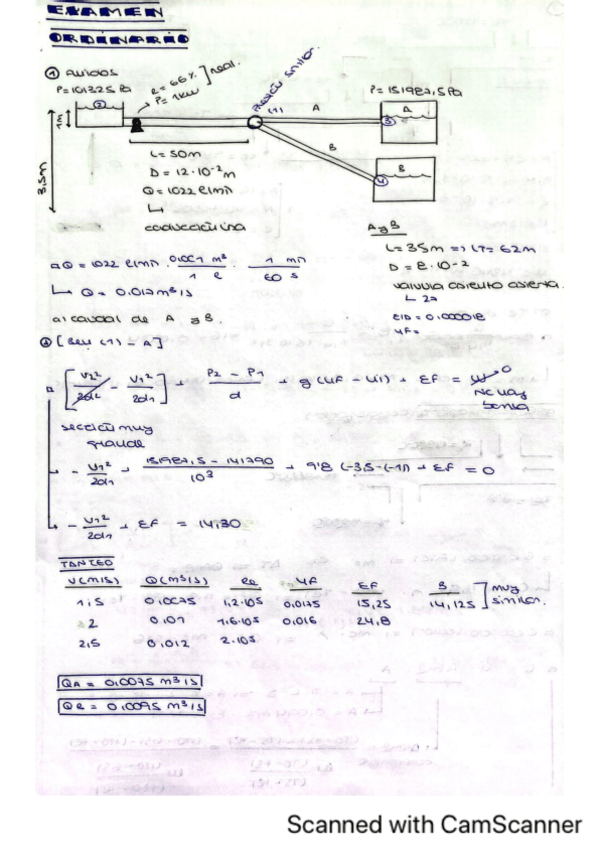 EXAMEN
ORDINARIO
① FLUIDOS
P=101325 Pa
R = 66%
P = 1kW
] real.
P= 151987,5 Pa
(1)
A
B
②
③
A
④
B
1m
3,5m
L= 50m
D = 12·10⁻² m
Q = 1022 l/min
↳
A y B
L= 35m => LT= 62m
D = 8·10⁻²
válvula asiento abierta.
↳ 27
ε/D = 0,000018
4F=
Q = 1022 l/min · 0,001 m³ / 1 l · 1 min / 60 s
↳ Q = 0.017 m³/s
a) caudal de A y B.
[ Bern (1) - A ]
[ V2²/2α2 - V1²/2α1 ] + P2 - P1 / d + g (  ) + EF = W → 0
No hay
bomba
sección muy
grande
- V1²/2α1 + 151987,5 - 141790 / 10³ + 9'8 (-3,5-(-1)) + EF = 0
- V1²/2α1 + EF = 14,30
TANTEO
V(m/s) Q(m³/s) Re 4F EF B
1,5 0,0075 1,2·10⁵ 0,0175 15,25 14,125 ] muy similar.
2 0,01 1,6·10⁵ 0,016 24,8
2,5 0,012 2·10⁵
QA = 0,0075 m³/s
QB = 0,0095 m³/s
Scanned with CamScanner